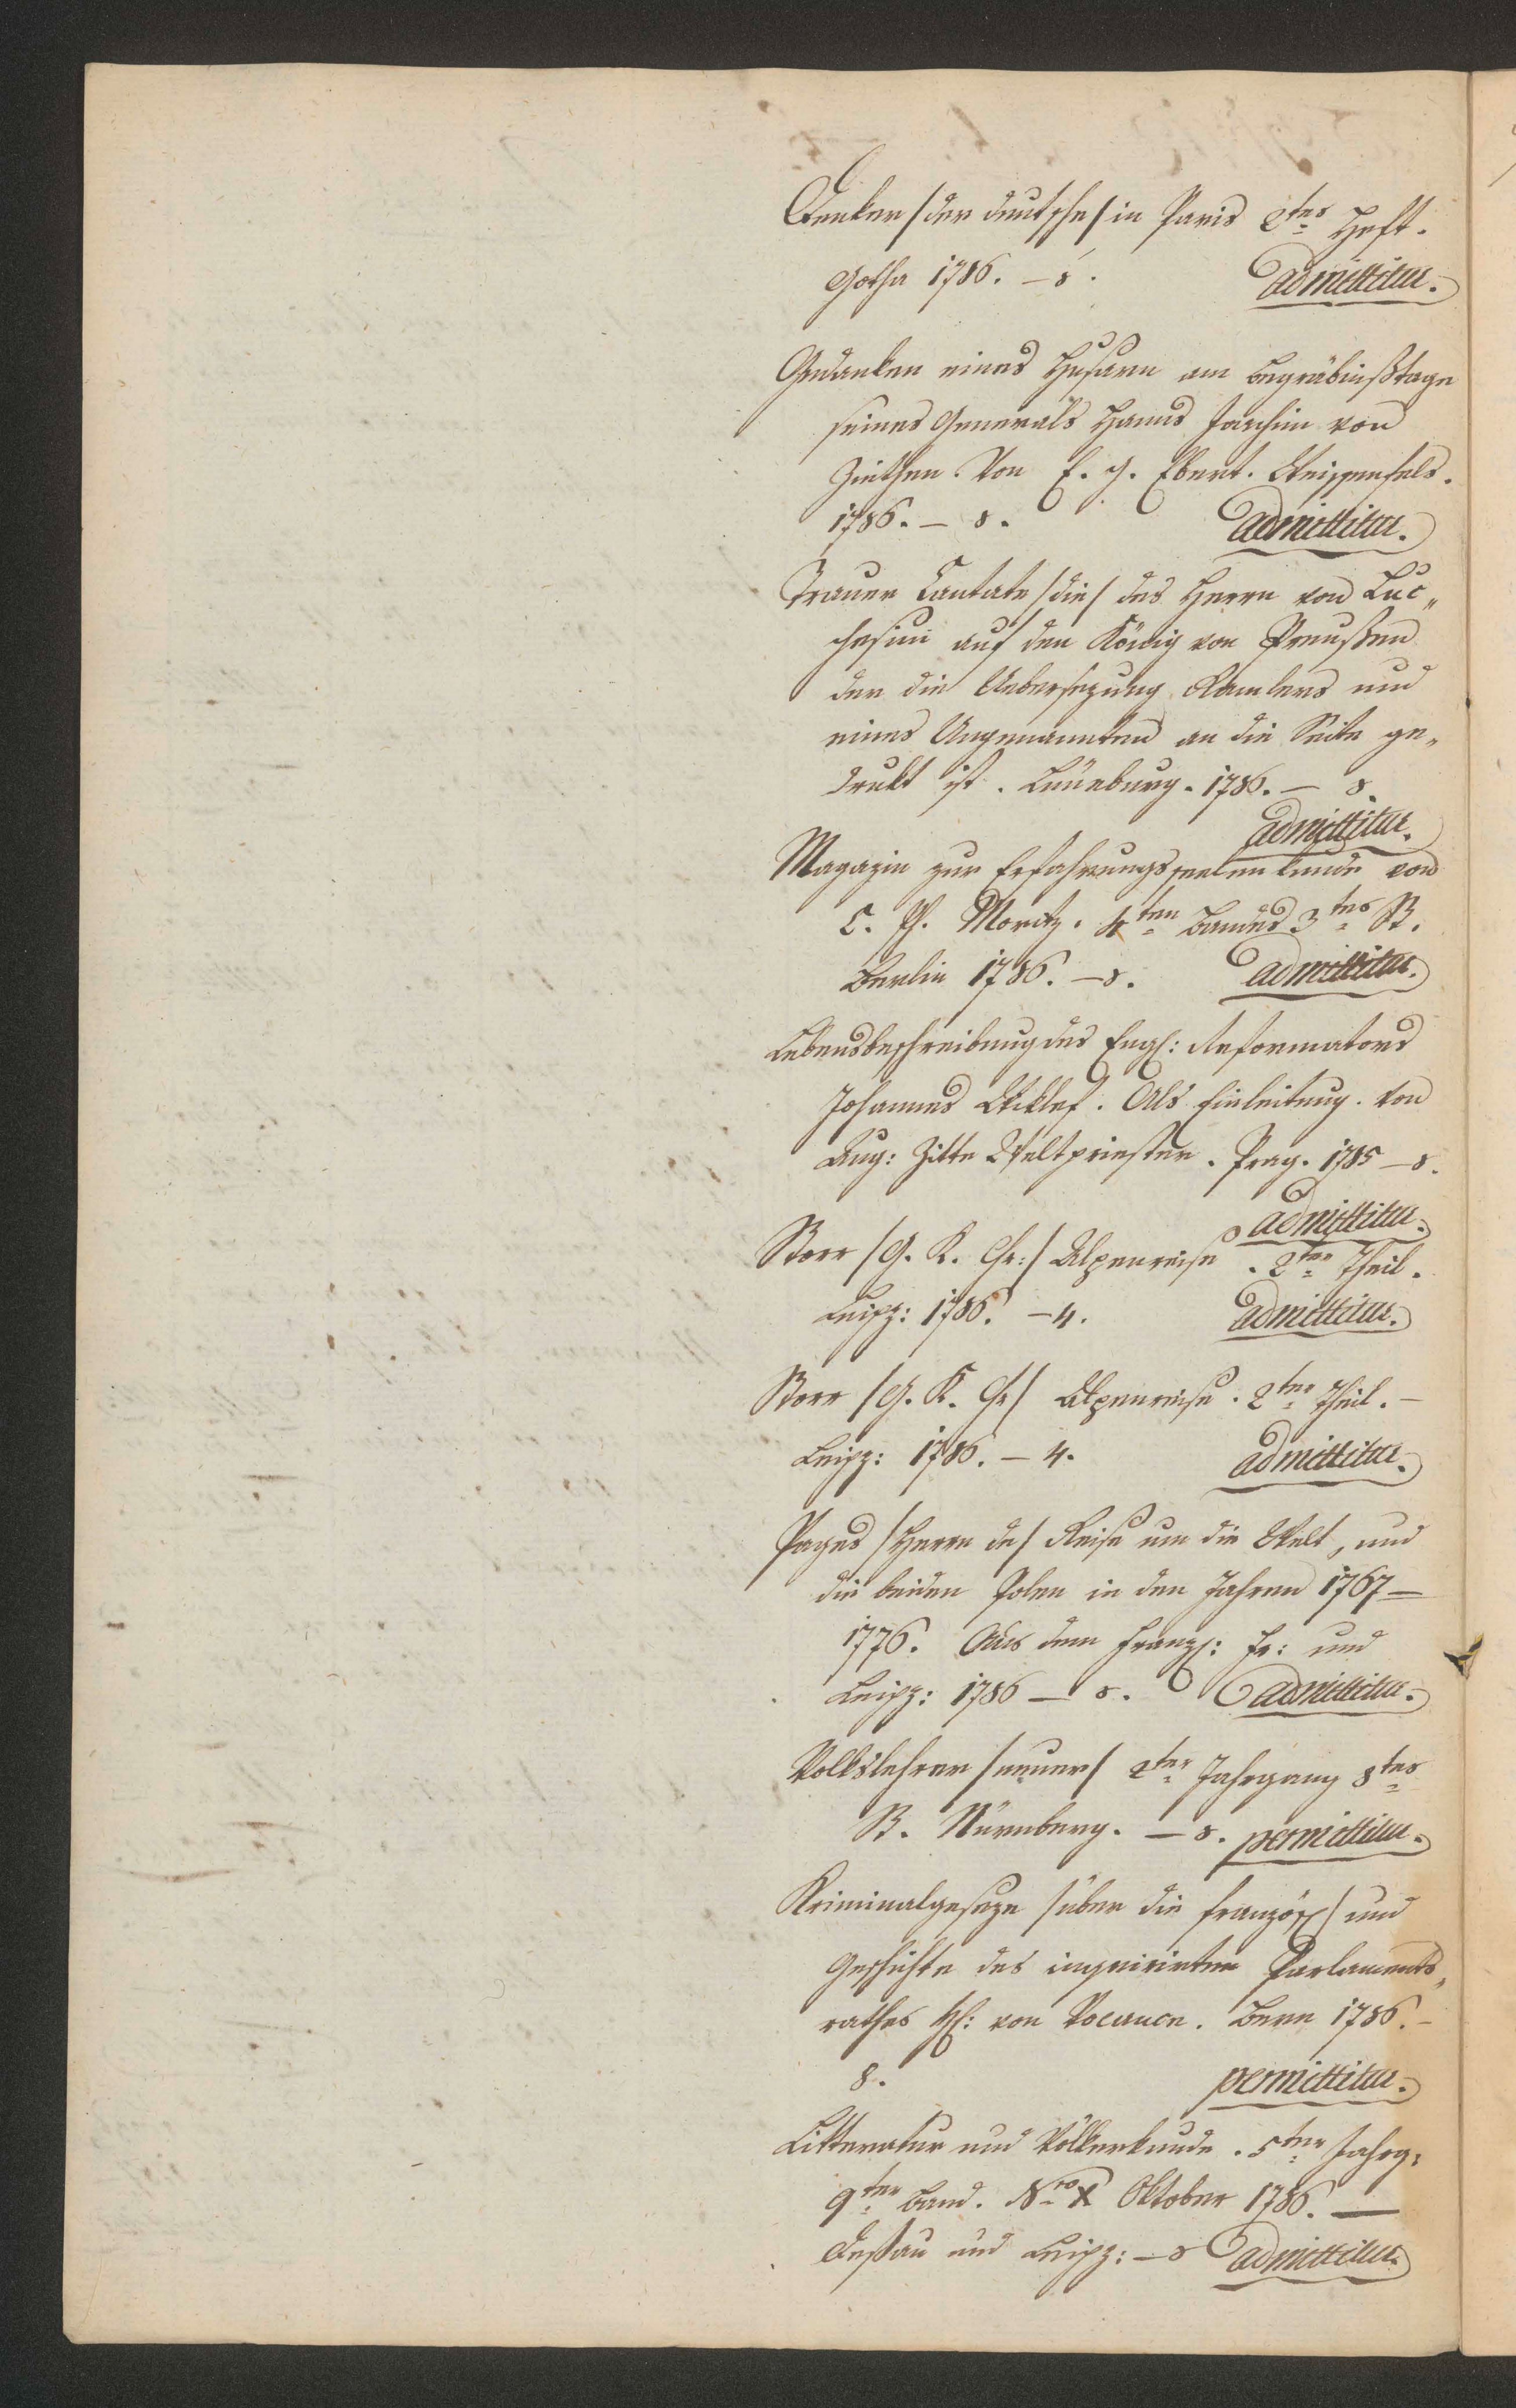 Denker /der deutsche/ in Paris 2tes Heft.
Gotha 1786. – 8. admittitur.
Gedanken eines Husaren am Begräbnißtage
seines Generals Hanns Joachim von
Ziethen. Von E. G. Ebert. Weissenfels.
1786. – 8. admittitur.
Trauer Cantate /die/ des Herrn von Luc„
chesini auf den König von Preußen
der die Uebersezung Ramlers und
eines Ungenannten an die Seite ge„
drukt ist. Lüneburg. 1786. – 8.
admittitur.
Magazin zur Erfahrungsseelenkunde von
C. Ph. Moritz. 4ten Bandes 3tes St.
Berlin 1786. – 8. admittitur.
Lebensbeschreibung des Engl: Reformators
Johannes Wiklef. Als Einleitung. Von
Aug: Zitte Weltpriester. Prag. 1785 – 8.
admittitur.
Storr /G. K. Chr:/ Alpenreise. 2ter Theil.
Leipz: 1786. – 4. admittitur.
Storr /G. K. Chr/ Alpenreise. 2ter Theil. –
Leipz: 1786. – 4. admittitur.
Pages /Herrn de/ Reise um die Welt, und
die beiden Polen in den Jahren 1767 –
1776. Aus dem Franz: Fr: und
Leipz: 1786 – 8. admittitur.
Volkslehrer /neuer/ 2ter Jahrgang 8tes
St. Nürnberg. – 8. permittitur.
Kriminalgeseze /über die französ:/ und
Geschichte des inquirirten Parlaments„
rathes H: von Vocance. Bern 1786. –
8. permittitur.
Litteratur und Völkerkunde. 5ter Jahrg:
9ter Band. Nro X Oktober 1786. –
Deßau und Leipz: – 8 admittitur.